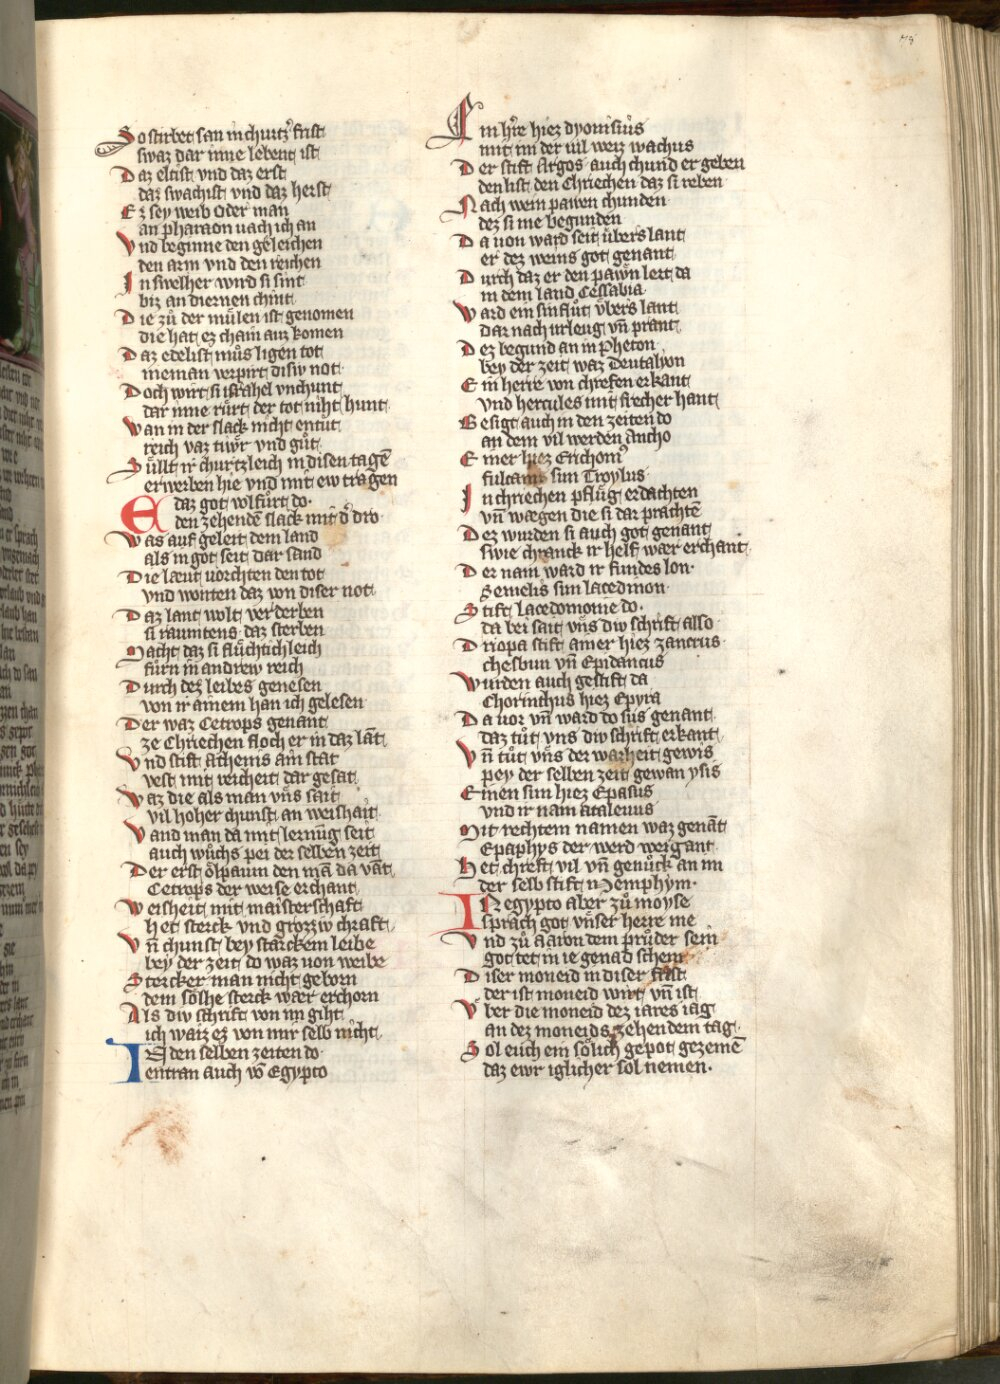 78
So stirbet san in churtzˀ frist
swaz dar inne lebent ist
Daz eltist vnd daz erst
daz swachist vnd daz herst
Ez sey weib Oder man
an pharaon vach ich an
Vnd beginne den geleichen
den arm vnd den reichen
In swelher wird si sint
biz an diernen chint
Die zů der můlen ist genomen
die hat ez chain auz komen
Daz edelist můs ligen tot
nieman verpirt disiv not
Doch wirt si israhel vnchunt
dar inne růrt der tot niht hunt
Wan in der slack nicht entůt
reich vaz tiwr vnd gůt
Süllt ir churtzleich in disen tagē
erwerben hie vnd mit ew tragen
E daz got wlfůrt do
den zehendē slack mit dˀ dro
Was auf geleit dem land
als in got seit dar sand
Die læut vorchten den tot
vnd wonten daz von diser not
Daz lant wolt verderben
si raumtens daz sterben
Macht daz si flůchtichleich
fürn in andrew reich
Durch dez leibes genesen
von ir ainem han ich gelesen
Der waz Cetrops genant
ze Chriechen floch er in daz lāt
Vnd stift athenis ain stat
vest mit reicheit dar gesat
Waz die als man vns sait
vil hoher chunst an weishait
Vand man da mit lernūg seit
auch wůchs pei der selben zeit
Der erst ölpaum den mā da vāt
Cetrops der weise erchant
Weisheit mit maisterschaft
het sterck vnd grozziv chraft
Vn̄ chunst bey starckem leibe
bey der zeit do waz von weibe
Stercker man nicht geborn
dem sölhe sterck wær erchorn
Als div schrift von im giht
ich waiz ez von mir selb nicht
IN den selben zeiten do
entran auch vō Egypto
Ein hˀre hiez dyonisius
mit im der vil weiz wachus
Der stift Argos auch chund er geben
den list den Chriechen daz si reben
Nach wein pawen chunden
dez si me begunden
Da von ward seit übers lant
er dez weins got genant
Durch daz er den pawn lert da
in dem land Cessabia
Ward ein sinflůt übers lant
dar nach urleug vn̄ prant
Dez begund an in Pheton
bey der zeit waz Deutalyon
Ein herre von chrefen erkant
vnd hercules mit frecher hant
Besigt auch in den zeiten do
an dem vil werden Ancho
Einer hiez Erichomˀ
fulcani sun Troylus
In chriechen pflůg erdachten
vn̄ wægen die si dar prachtē
Dez wurden si auch got genant
swie chranck ir helf wær erchant
Der nam ward ir fundes lon
Semelis sun lacedmon
Stift lacedomonie do
da bei sait vns div schrift also
Driopa stift ainer hiez zanctus
chesbun vn̄ Epidancus
Wurden auch gestift da
Chorinthus hiez Epyra
Da vor vn̄ ward do sus genant
daz tůt vns div schrift erkant
Vn̄ tůt vns der warheit gewis
pey der selben zeit gewan ysis
Einen sun hiez Epasus
vnd ir nam atalenus
Mit rechtem namen waz genāt
Epaphys der werd weigant
Het chreft vil vn̄ genůck an im
der selb stift Memphym
IN egypto aber zů moyse
sprach got vnser herre me
Vnd zů aaron dem průder sein
got tet in ie genad schein
Diser moneid in diser frist
der ist moneid wirt vn̄ ist
Vber die moneid dez iares iag
an dez moneids zehendem tag
Sol euch ein sölich gepot gezemē
daz ewr iglicher sol nemen